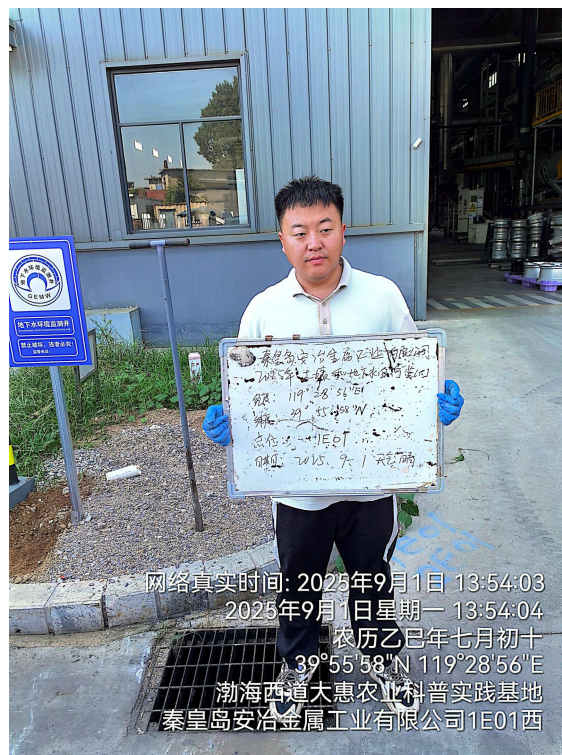 地下水环境监测井
GEMW
地下水环境监测井
禁止破坏，违者必究！
监督电话：
秦皇岛安冶金属工业有限公司
2025年土壤和地下水自行监测
经度：119°28′56″E
纬度：39°55′58″N
点位：1E01
日期：2025.9.1
1E01
网络真实时间: 2025年9月1日 13:54:03
2025年9月1日星期一 13:54:04
农历乙巳年七月初十
39°55'58"N 119°28'56"E
渤海西道大惠农业科普实践基地
秦皇岛安冶金属工业有限公司1E01西